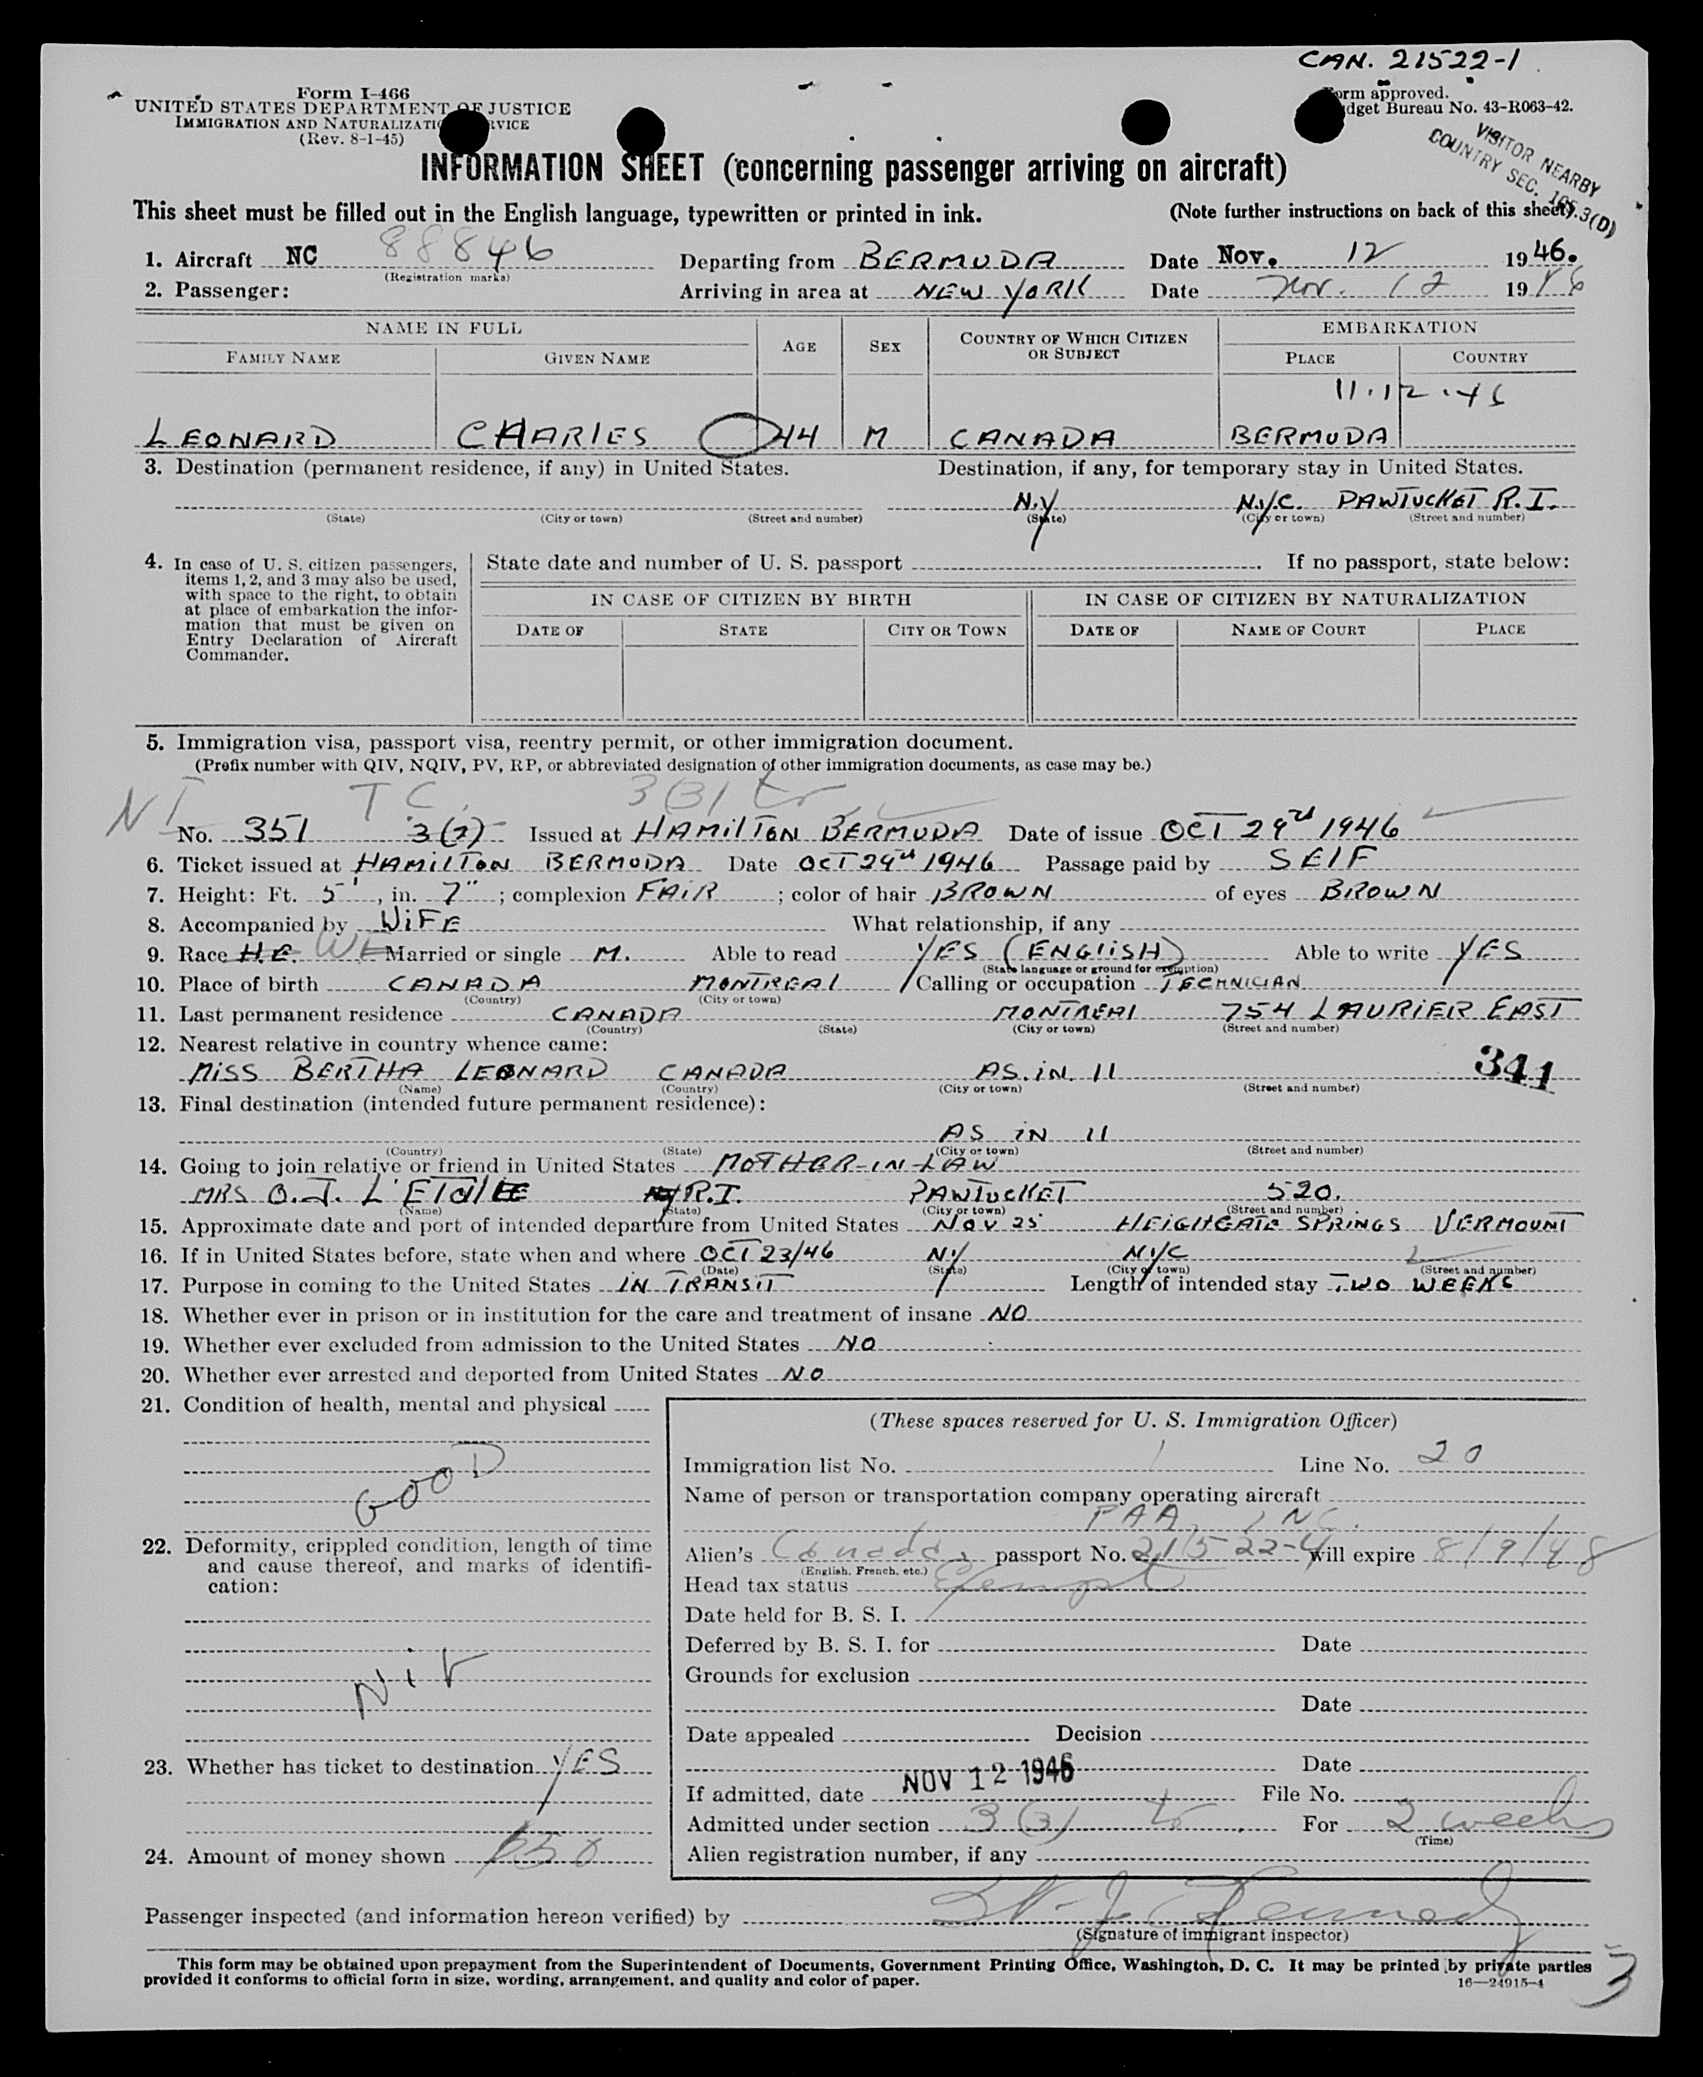 CAN. 21522-1
Form I-466
UNITED STATES DEPARTMENT OF JUSTICE
IMMIGRATION AND NATURALIZATION SERVICE
(Rev. 8-1-45)
Form approved.
Budget Bureau No. 43-R063-42.
VISITOR NEARBY
COUNTRY SEC. 165.3(D)
INFORMATION SHEET (concerning passenger arriving on aircraft)
This sheet must be filled out in the English language, typewritten or printed in ink. (Note further instructions on back of this sheet).
1. Aircraft NC 88846 Departing from BERMUDA Date Nov. 12 1946.
(Registration marks)
2. Passenger: Arriving in area at NEW YORK Date Nov. 12 1946
NAME IN FULL AGE SEX COUNTRY OF WHICH CITIZEN OR SUBJECT EMBARKATION
FAMILY NAME GIVEN NAME PLACE COUNTRY
11.12.46
LEONARD CHARLES 44 M CANADA BERMUDA
3. Destination (permanent residence, if any) in United States. Destination, if any, for temporary stay in United States.
N.Y N.Y.C. PAWTUCKET R.I.
(State) (City or town) (Street and number) (State) (City or town) (Street and number)
4. In case of U. S. citizen passengers, items 1, 2, and 3 may also be used, with space to the right, to obtain at place of embarkation the information that must be given on Entry Declaration of Aircraft Commander.
State date and number of U. S. passport If no passport, state below:
IN CASE OF CITIZEN BY BIRTH IN CASE OF CITIZEN BY NATURALIZATION
DATE OF STATE CITY OR TOWN DATE OF NAME OF COURT PLACE
5. Immigration visa, passport visa, reentry permit, or other immigration document.
(Prefix number with QIV, NQIV, PV, RP, or abbreviated designation of other immigration documents, as case may be.)
NI TC. 3(3) tr
No. 351 3(2) Issued at HAMILTON BERMUDA Date of issue OCT 29th 1946
6. Ticket issued at HAMILTON BERMUDA Date OCT 29th 1946 Passage paid by SELF
7. Height: Ft. 5', in. 7"; complexion FAIR; color of hair BROWN of eyes BROWN
8. Accompanied by WIFE What relationship, if any
9. Race H.E. WE Married or single M. Able to read YES (ENGLISH) Able to write YES
(State language or ground for exemption)
10. Place of birth CANADA MONTREAL Calling or occupation TECHNICIAN
(Country) (City or town)
11. Last permanent residence CANADA MONTREAL 754 LAURIER EAST
(Country) (State) (City or town) (Street and number)
12. Nearest relative in country whence came:
MISS BERTHA LEONARD CANADA AS IN 11
(Name) (Country) (City or town) (Street and number)
341
13. Final destination (intended future permanent residence):
AS IN 11
(Country) (State) (City or town) (Street and number)
14. Going to join relative or friend in United States MOTHER-IN-LAW
MRS O.J. L'ETOILE R.I. PAWTUCKET 520.
(Name) (State) (City or town) (Street and number)
15. Approximate date and port of intended departure from United States NOV 25 HEIGHGATE SPRINGS VERMOUNT
16. If in United States before, state when and where OCT 23/46 N.Y N.Y.C
(Date) (State) (City or town) (Street and number)
17. Purpose in coming to the United States IN TRANSIT Length of intended stay TWO WEEKS
18. Whether ever in prison or in institution for the care and treatment of insane NO
19. Whether ever excluded from admission to the United States NO
20. Whether ever arrested and deported from United States NO
21. Condition of health, mental and physical
GOOD
22. Deformity, crippled condition, length of time and cause thereof, and marks of identification:
NIL
23. Whether has ticket to destination YES
24. Amount of money shown $50
(These spaces reserved for U. S. Immigration Officer)
Immigration list No. 1 Line No. 20
Name of person or transportation company operating aircraft
PAA, INC.
Alien's Canada passport No. 21522-4 Will expire 8/9/48
(English, French, etc.)
Head tax status Exempt
Date held for B. S. I.
Deferred by B. S. I. for Date
Grounds for exclusion
Date
Date appealed Decision
Date
If admitted, date NOV 12 1946 File No.
Admitted under section 3(3) tr For 2 weeks
(Time)
Alien registration number, if any
Passenger inspected (and information hereon verified) by Kennedy
(Signature of immigrant inspector)
This form may be obtained upon prepayment from the Superintendent of Documents, Government Printing Office, Washington, D. C. It may be printed by private parties
provided it conforms to official form in size, wording, arrangement, and quality and color of paper. 16—24915-4
3